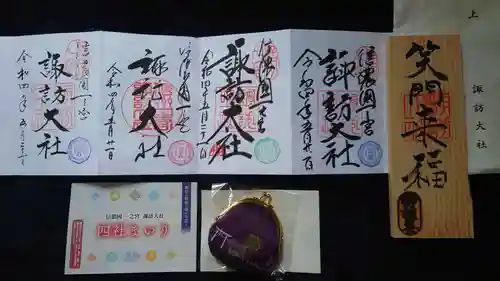 信濃國一之宮
諏訪大社
令和四年五月二十一日
信濃國一之宮
諏訪大社
令和四年五月廿一日
信濃國一之宮
諏訪大社
令和四年五月二十一日
信濃國一之宮
諏訪大社
令和四年五月廿一日
笑門来福
上
諏訪大社
信濃國一之宮 諏訪大社
四社まいり